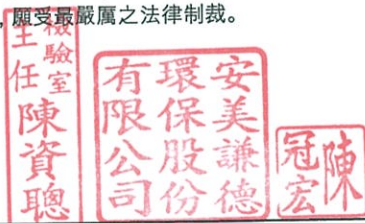 ,願受最嚴厲之法律制裁。
檢驗室
主任陳資聰
安美謙德
環保股份
有限公司
陳冠宏